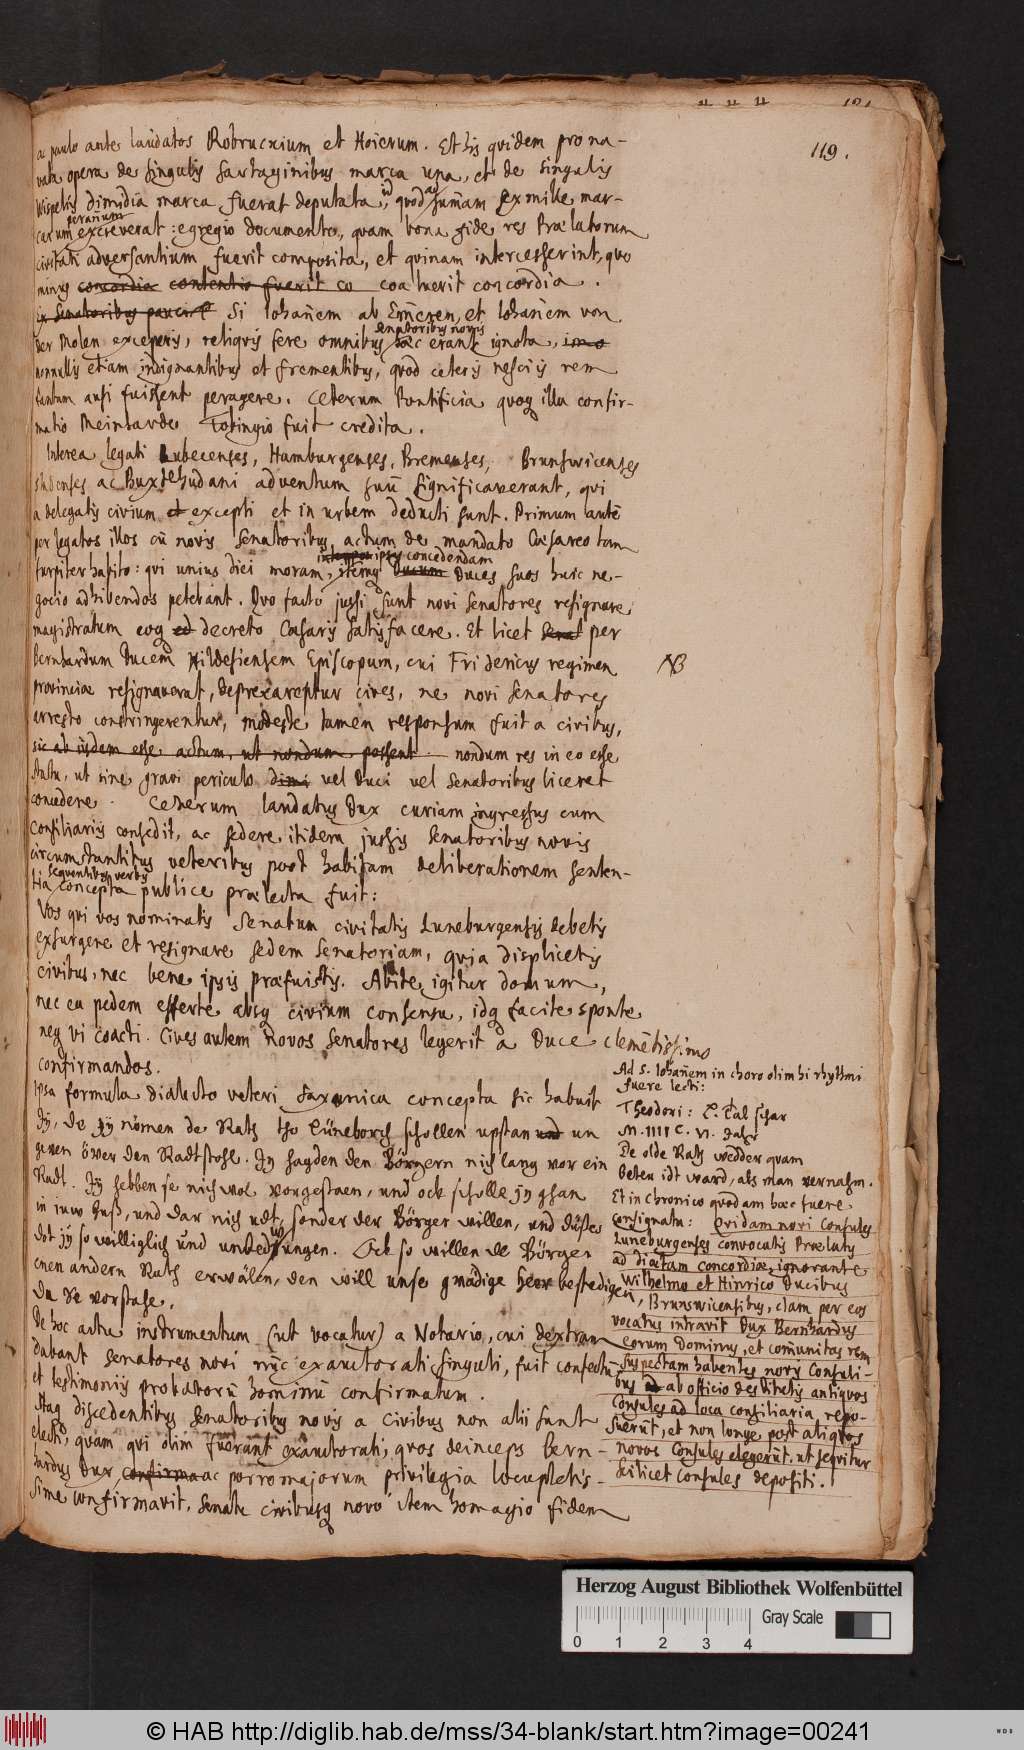 119.
ac paulo ante laudatos Robrucxium et Hoierum. Et his quidem pro na-
vata opera de singulis sartaginibus marca una, et de singulis
Wispelis dimidia marca fuerat deputata, id quod ad sumam ex mille mar-
carum peraeum excreverat: egregio documento, quam bona fide res Prælatorum
civitati adversantium fuerit composita, et quinam intercesserint, quo
minus concordia contentio fuerit co coaluerit concordia.
ex Senatoribus paucis Si Iohanem ab Emeren, et Iohanem von
der Molen exceperis, reliquis fere omnibus senatoribus novis hæc erant ignota, imo
nonnullis etiam indignantibus et frementibus, quod ceteris nesciis rem
tantam ausi fuissent peragere. Ceterum Pontificia quoq illa confir-
matio Meinardo Totingio fuit credita.
Interea legati Lubecenses, Hamburgenses, Bremenses, Brunswicenses
Stadenses ac Buxtehudani adventum suu significaverant, qui
a delegatis civium et excepti et in urbem deducti sunt. Primum laute
per legatos illos cu novis Senatoribus actum de mandato Cæsareo tam
turpiter habito: qui unius diei moram, ipsis concedendam itemq Ducum Duces suos huic ne-
gocio adhibendos petebant. Quo facto jussi sunt novi Senatores resignare
magistratum eoq ed decreto Cæsaris satisfacere. Et licet Senat per
Bernhardum Ducem Hildesiensem Episcopum, cui Fridericus regimen
provinciæ resignaverat, deprecareptur cives, ne novi Senatores
arresto constringerentur, modeste tamen responsum fuit a civibus,
sic ab iisdem esse actum, ut nondum possent nondum res in eo esse
statu, ut sine gravi periculo dimi vel Duci vel Senatoribus liceret
concedere. Ceterum laudatus Dux curiam ingressus cum
Consiliariis consedit, ac sedere itidem jussis Senatoribus novis
circumstantibus veteribus post habitam deliberationem senten-
tia sequentibus verbis concepta publice prælecta fuit:
Vos qui vos nominatis Senatum civitatis Luneburgensis debetis
exsurgere et resignare sedem Senatoriam, quia displicetis
civibus, nec bene ipsis præfuistis. Abite igitur domum,
nec ea pedem efferte absq civium consensu, idq facite sponte
neq vi coacti. Cives autem novos Senatores legerit a Duce clemetissimo
confirmandos.
Ipsa formula dialecto veteri Saxonica concepta sic habuit
Jy, de jy nömen de Rath tho Lüneborch schollen upstan und un
geven över den Radtstohl. Jy hagden den Börgern nich lang vor ein
Radt. Jy hebben se nich wol vorgestaen, und ock scholle jy ghan
in juw Huß, und dar nich udt, sonder der Börger willen, und düsses
dot jy so williglich und unbedwungen. Ock so willen de Börger
enen andern Rath erwälen, den will unse gnädige Heer bestedigen
Da de vorstahe.
De hoc actu instrumentum (ut vocatur) a Notario, cui dextram
dabant Senatores novi nuc exauctorati singuli, fuit confectu
et testimoniis probatoru hominu confirmatum.
Itaq discedentibus Senatoribus novis a civibus non alii sunt
electi, quam qui olim fuerant exauctorati, quos deinceps Bern-
hardus Dux confirma ac porro majorum privilegia locupletis-
sime confirmavit. Senatu civibusq novo item homagio fidem
NB
Ad S. Iohanem in choro olim hi rhythmi
fuere lecti:
Theodori: L. Tal schar
M. IIII C. VI. Jahr
De olde Rath wedder quam
Beten idt ward, als man vernahm.
Et in chronico quodam hæc fuere
consignata: Quidam novi Consules
Luneburgenses convocatis Prælatis
ad diætam concordiæ, ignorante
Wilhelmo et Hinrico Ducibus
Brunswicensibus, clam per eos
vocatus intravit Dux Bernhardus
eorum dominus, et comunitas rem
suspectam habentes novis Consuli-
bus ad ab officio destitutis antiquos
Consules ad loca consiliaria repo-
suerut, et non longe post aliquos
novos Consules elegerut, ut sequitur
scilicet Consules depositi.
Herzog August Bibliothek Wolfenbüttel
Gray Scale
0 1 2 3 4
© HAB http://diglib.hab.de/mss/34-blank/start.htm?image=00241
WDB